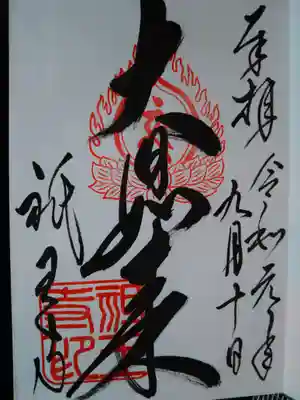 奉拝
令和元年
九月十日
大日如来
祇王寺
祇王
寺印